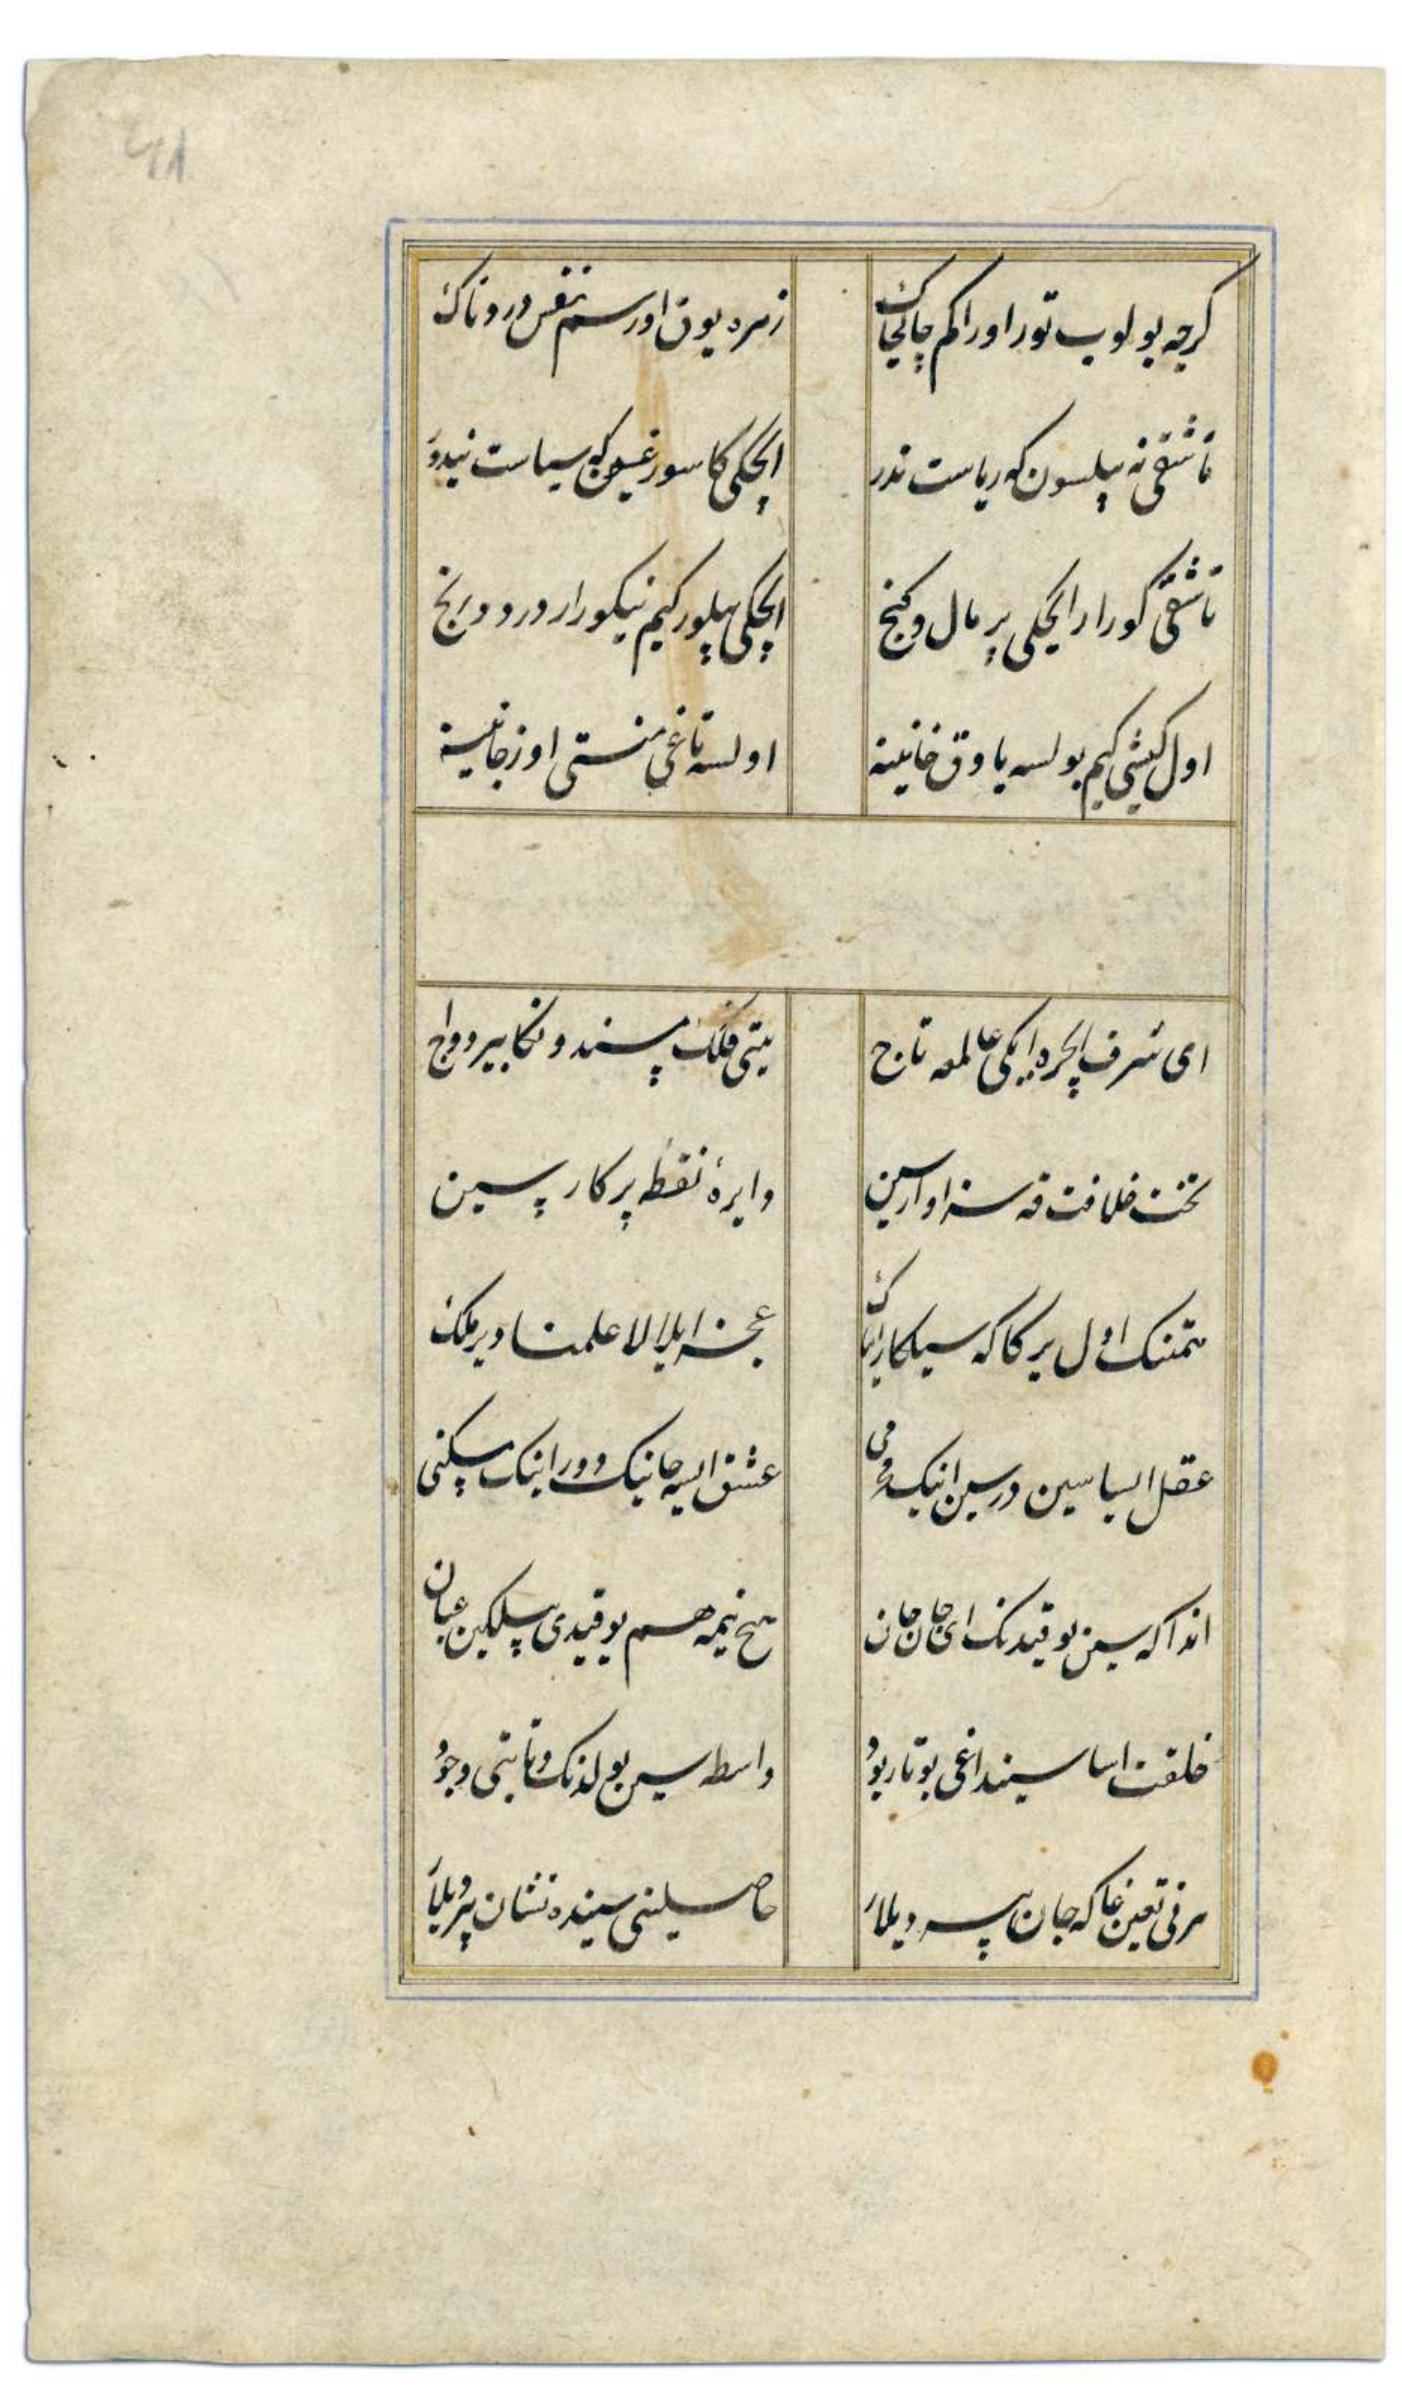 کرچه بولوب تور اوراکم چاک چاک
زمره یوق اورسم نفس دردناک
تاشقی نه بیلسون که ریاست ندر
ایچکی کا سورغیل که سیاست نیدور
تاشقی کورار ایچکی پر مال و کنج
ایچکی بیلور کیم نیکورار درد و رنج
اول کیشی کیم بولسه یاوق خانینه
اولسه تاغی منستی اوز جانینه
ای شرف ایچره ایکی عالمعه تاج
یتی فلک سندونکا بیر دواج
تخت خلافت قه سزاوارسین
دایرهٔ نقطه پرکارسین
یتمنک اول یرکا که سیکار ایماک
عجز ایلا لا علمنا دیر ملک
عقل السیا سین دورسین انیک
عشق ایسه جانیک دور انیک مسکنی
انداکه سین یوقیدنک ای جان جان
هیچ نیمه هم یوقیدی بیلکین عیان
خلقت اساسینداغی بو تار بود
واسطه سین بولدنک و تابتی وجود
مرنی تعین غاکه جان بیردیلار
حاصلینی سینده نشان بیردیلار